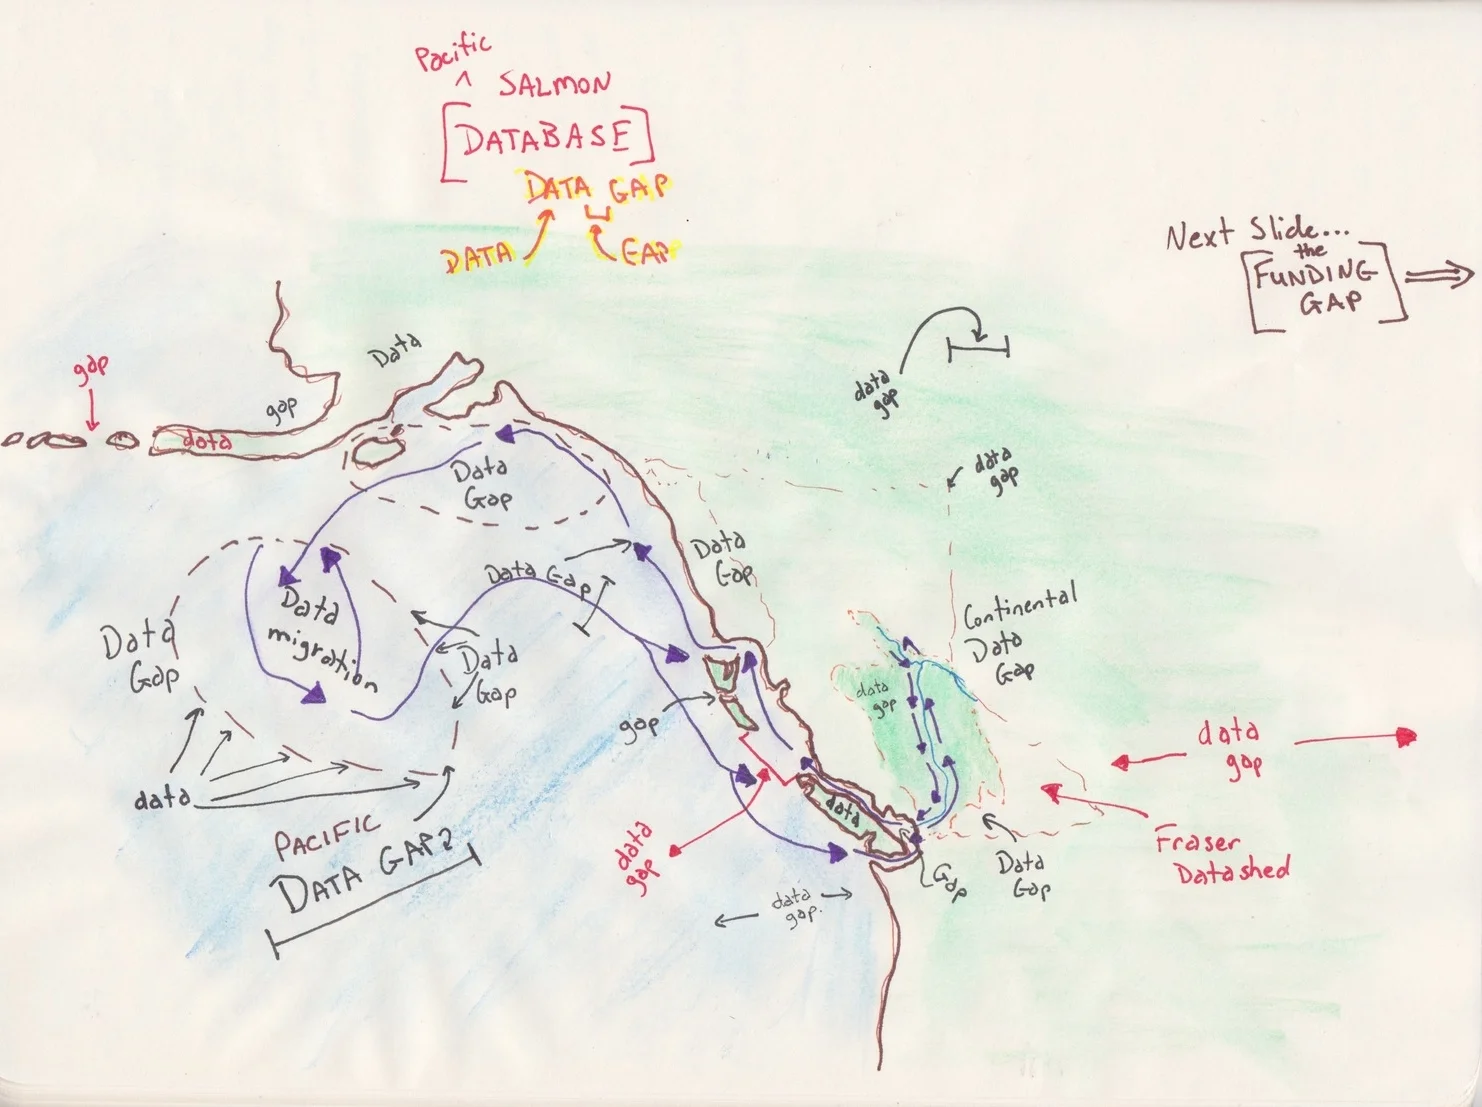 Pacific
^ SALMON
[DATABASE]
DATA GAP
DATA
GAP
Next Slide...
the
[FUNDING
GAP]
gap
Data
gap
data
data
gap
Data
Gap
data
gap
Data
Gap
Data Gap
Data
migration
Data
Gap
Data
Gap
Continental
Data
Gap
data
gap
gap
data
gap
data
data
PACIFIC
DATA GAP?
data
gap
Fraser
Datashed
Data
Gap
Gap
data
gap.